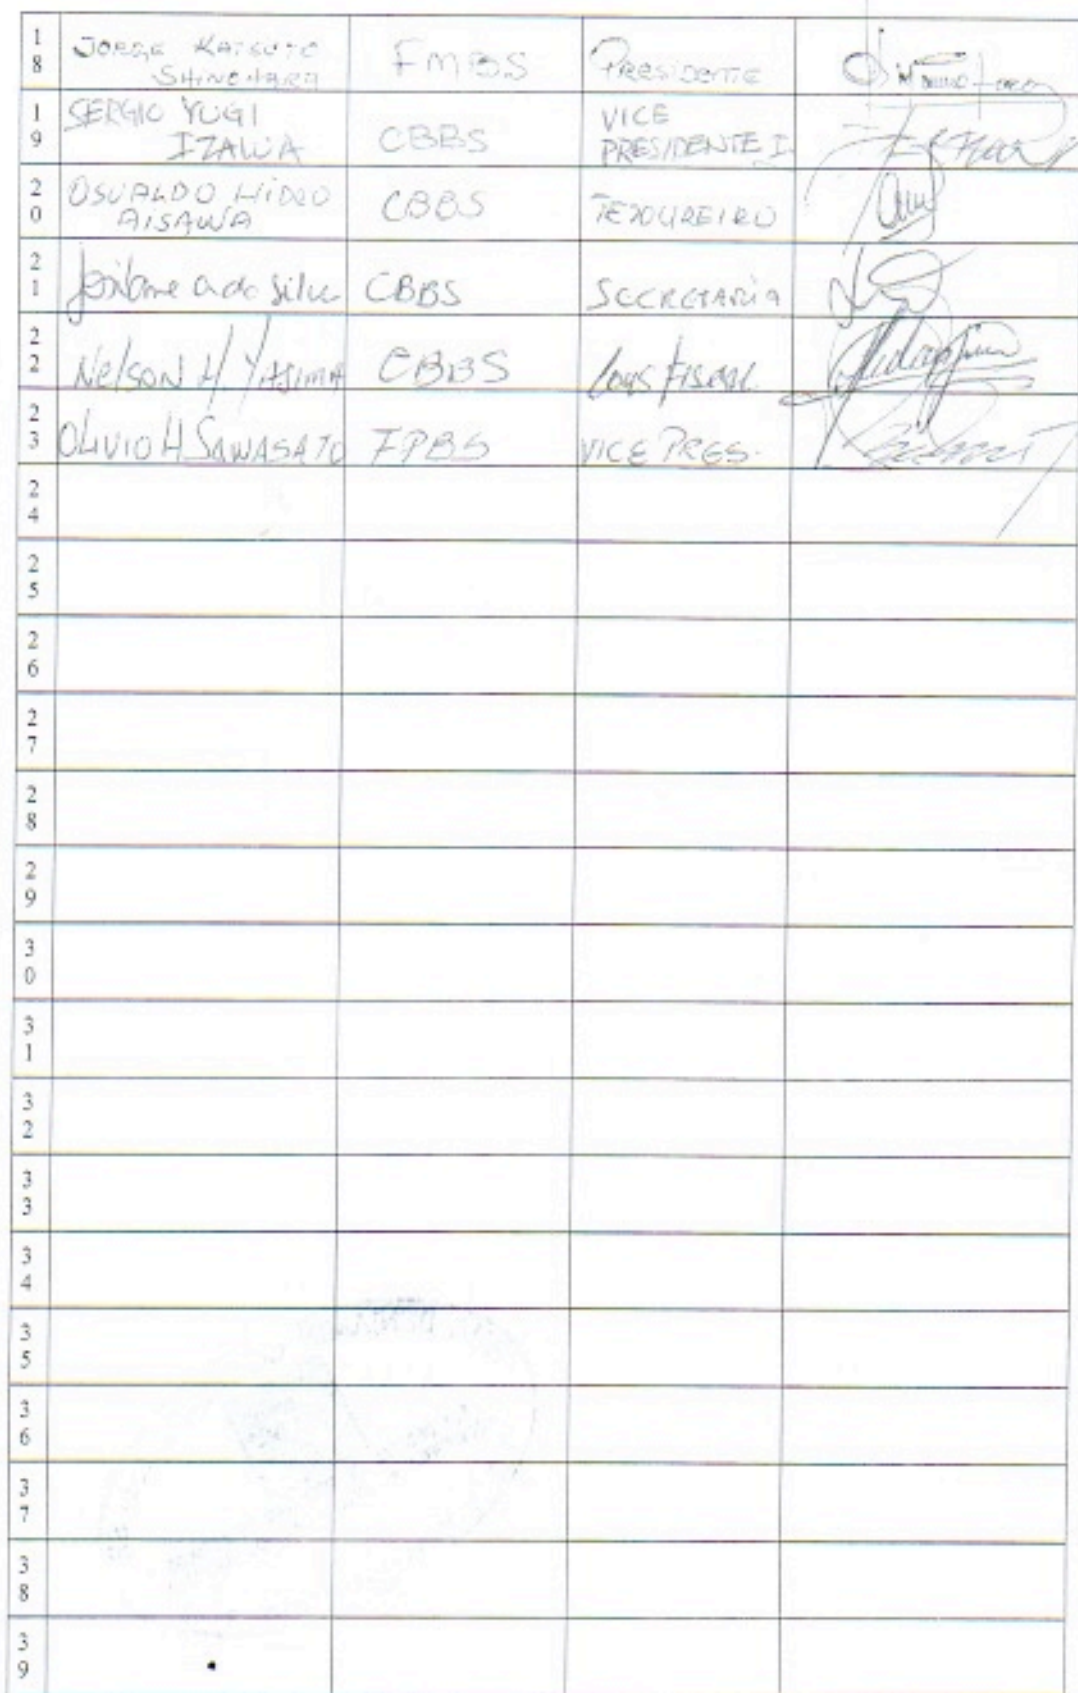 18 JORGE KATSUTO SHINOHARA FMBS PRESIDENTE
19 SERGIO YUGI IZAWA CBBS VICE PRESIDENTE I
20 OSVALDO HIDEO AISAWA CBBS TEZOUREIRO
21 a da Silva CBBS SECRETARIA
22 Nelson H. YAJIMA CBBS Cons FISCAL
23 OLIVIO H SAWASATO FPBS VICE PRES.
24
25
26
27
28
29
30
31
32
33
34
35
36
37
38
39